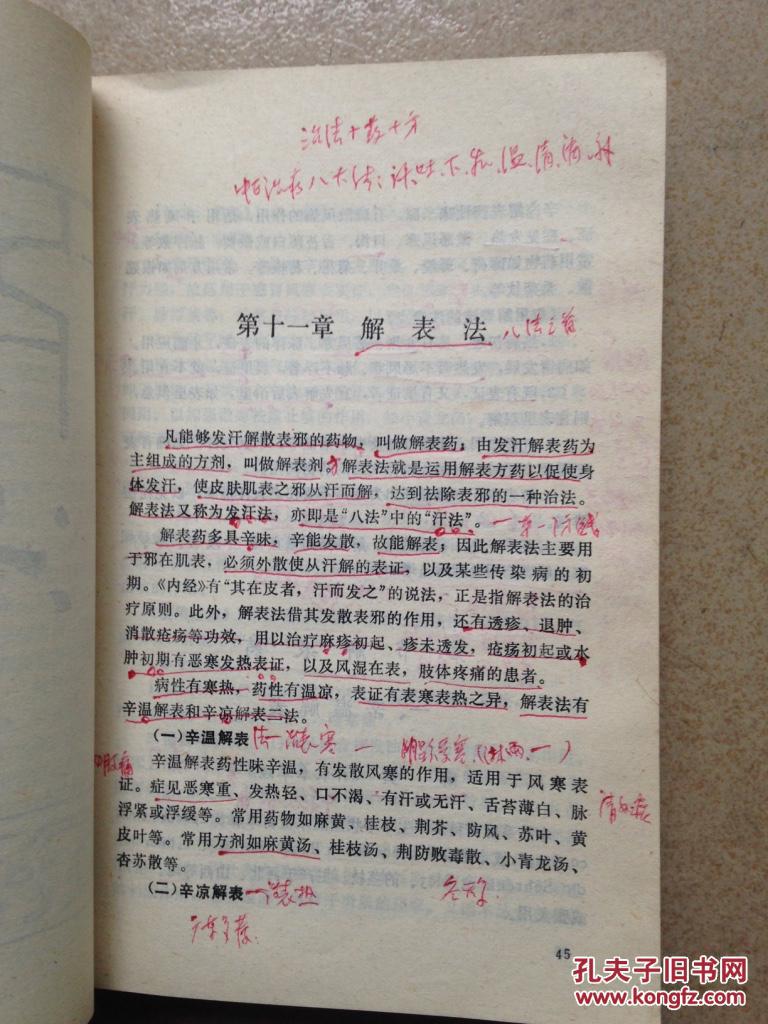 治法十药十方
中医治病八大法：汗.吐.下.和.温.清.消.补
第十一章 解表法 八法之首
凡能够发汗解散表邪的药物，叫做解表药；由发汗解表药为
主组成的方剂，叫做解表剂。解表法就是运用解表方药以促使身
体发汗，使皮肤肌表之邪从汗而解，达到祛除表邪的一种治法。
解表法又称为发汗法，亦即是“八法”中的“汗法”。
解表药多具辛味，辛能发散，故能解表；因此解表法主要用
于邪在肌表，必须外散使从汗解的表证，以及某些传染病的初
期。《内经》有“其在皮者，汗而发之”的说法，正是指解表法的治
疗原则。此外，解表法借其发散表邪的作用，还有透疹、退肿、
消散疮疡等功效，用以治疗麻疹初起、疹未透发，疮疡初起或水
肿初期有恶寒发热表证，以及风湿在表，肢体疼痛的患者。
病性有寒热，药性有温凉，表证有表寒表热之异，解表法有
辛温解表和辛凉解表二法。
(一)辛温解表 法一治表寒
辛温解表药性味辛温，有发散风寒的作用，适用于风寒表
证。症见恶寒重、发热轻、口不渴、有汗或无汗、舌苔薄白、脉
浮紧或浮缓等。常用药物如麻黄、桂枝、荆芥、防风、苏叶、黄
皮叶等。常用方剂如麻黄汤、桂枝汤、荆防败毒散、小青龙汤、
杏苏散等。
(二)辛凉解表 治表热
45
孔夫子旧书网
www.kongfz.com